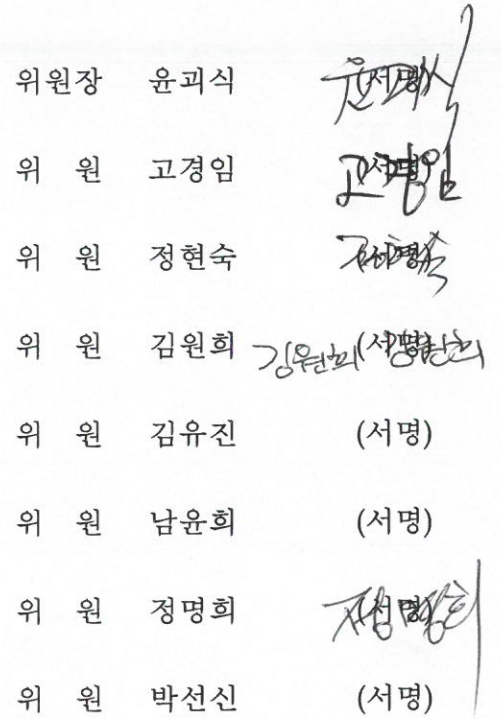 위원장 윤괴식 (서명)
위 원 고경임 (서명)
위 원 정현숙 (서명)
위 원 김원희 김원희 (서명)
위 원 김유진 (서명)
위 원 남윤희 (서명)
위 원 정명희 (서명)
위 원 박선신 (서명)